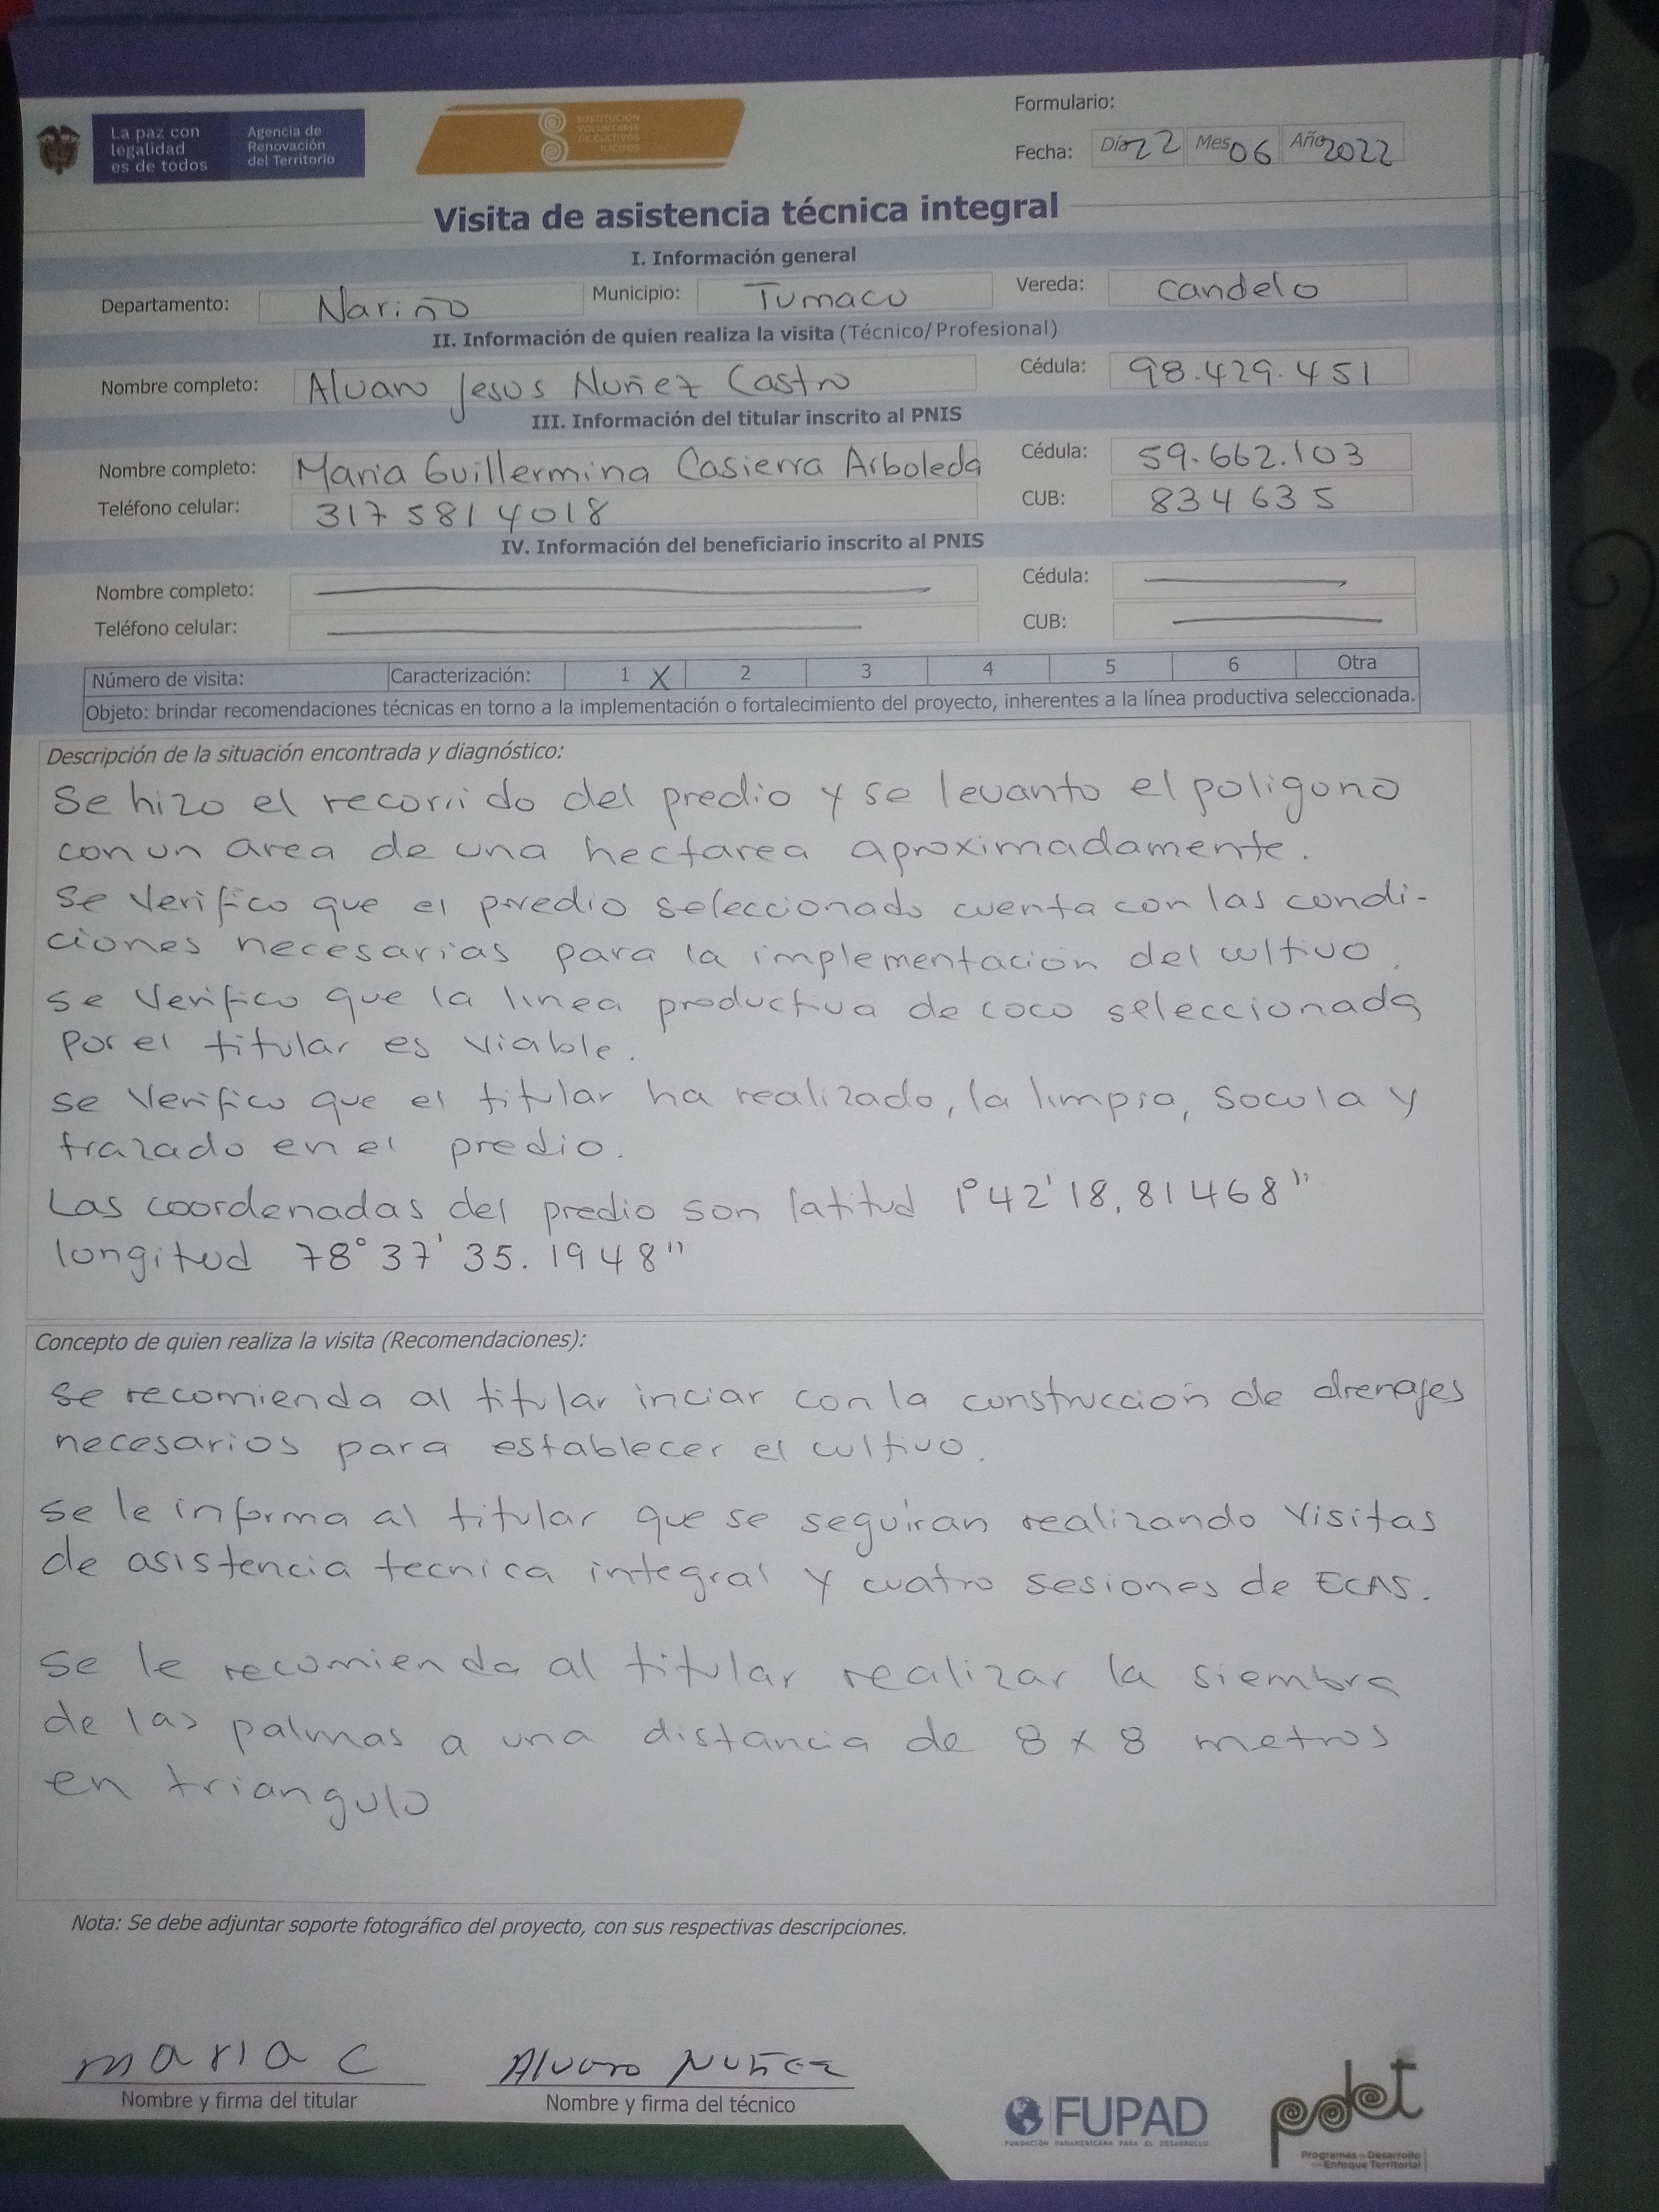 La paz con
legalidad
es de todos
Agencia de
Renovación
del Territorio
SUSTITUCIÓN
VOLUNTARIA
DE CULTIVOS
ILÍCITOS
Formulario:
Fecha: Día 22 Mes 06 Año 2022
Visita de asistencia técnica integral
I. Información general
Departamento: Nariño Municipio: Tumaco Vereda: Candelo
II. Información de quien realiza la visita (Técnico/Profesional)
Nombre completo: Alvaro Jesus Nuñez Castro Cédula: 98.429.451
III. Información del titular inscrito al PNIS
Nombre completo: Maria Guillermina Casierra Arboleda Cédula: 59.662.103
Teléfono celular: 317 581 4018 CUB: 834635
IV. Información del beneficiario inscrito al PNIS
Nombre completo: Cédula:
Teléfono celular: CUB:
Número de visita: Caracterización: 1 X 2 3 4 5 6 Otra
Objeto: brindar recomendaciones técnicas en torno a la implementación o fortalecimiento del proyecto, inherentes a la línea productiva seleccionada.
Descripción de la situación encontrada y diagnóstico:
Se hizo el recorrido del predio y se levanto el poligono
con un area de una hectarea aproximadamente.
Se Verifico que el predio seleccionado cuenta con las condi-
ciones necesarias para la implementación del cultivo.
Se Verifico que la linea productiva de coco seleccionada
Por el titular es viable.
se Verifico que el titular ha realizado, la limpia, Socola y
trazado en el predio.
Las coordenadas del predio son latitud 1°42'18.81468"
longitud 78°37'35.1948"
Concepto de quien realiza la visita (Recomendaciones):
Se recomienda al titular inciar con la construcción de drenajes
necesarios para establecer el cultivo.
se le informa al titular que se seguiran realizando Visitas
de asistencia tecnica integral y cuatro sesiones de ECAS.
Se le recomienda al titular realizar la siembra
de las palmas a una distancia de 8 x 8 metros
en triangulo
Nota: Se debe adjuntar soporte fotográfico del proyecto, con sus respectivas descripciones.
maria c Alvaro Nuñez
Nombre y firma del titular Nombre y firma del técnico
FUPAD
FUNDACIÓN PANAMERICANA PARA EL DESARROLLO
pdet
Programas de Desarrollo
con Enfoque Territorial